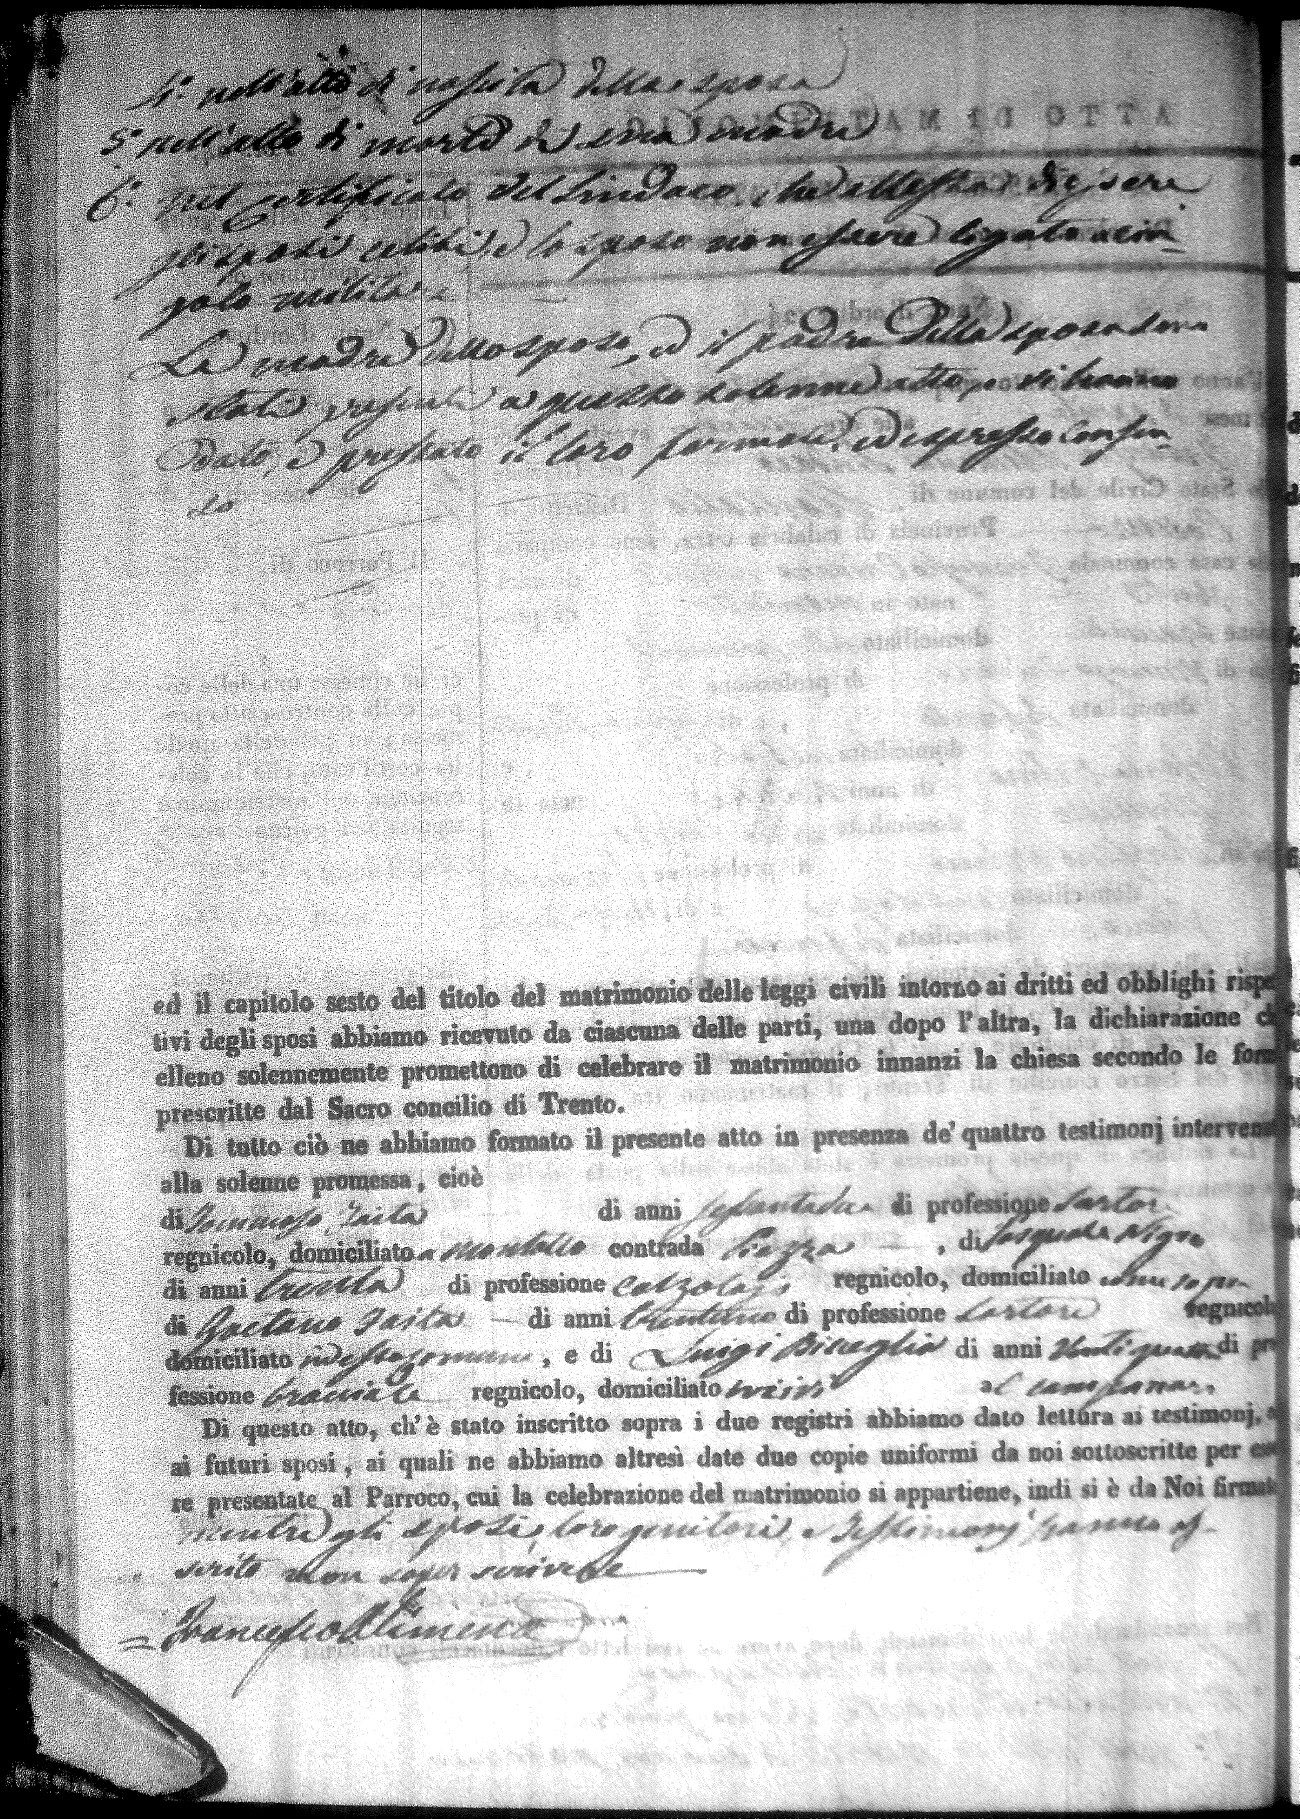 4.° nell'atto di nascita della sposa
5.° nell'atto di morte di sua madre
6.° nel certificato del Sindaco, che attesta di essere
gli sposi celibi, e lo sposo non essere ligato a cin-
golo militare
La madre dello sposo, ed il padre della sposa sono
stati presenti a questo solenne atto, e vi hanno
dato, e prestato il loro formale, ed espresso consen-
so
ed il capitolo sesto del titolo del matrimonio delle leggi civili intorno ai dritti ed obblighi rispe
tivi degli sposi abbiamo ricevuto da ciascuna delle parti, una dopo l'altra, la dichiarazione ch
elleno solennemente promettono di celebrare il matrimonio innanzi la chiesa secondo le form
prescritte dal Sacro concilio di Trento.
Di tutto ciò ne abbiamo formato il presente atto in presenza de' quattro testimonj intervenu
alla solenne promessa, cioè
di Tommaso Gaita di anni sessantadue di professione Sartore
regnicolo, domiciliato a Montalto contrada Piazza , di Pasquale Nigro
di anni trenta di professione calzolajo regnicolo, domiciliato come sopra
di Gaetano Gaita di anni trentuno di professione sartore regnicolo
domiciliato , e di Luigi Bisceglia di anni di pro
fessione bracciale regnicolo, domiciliato ivi
Di questo atto, ch' è stato inscritto sopra i due registri abbiamo dato lettura ai testimonj, e
ai futuri sposi, ai quali ne abbiamo altresì date due copie uniformi da noi sottoscritte per esse
re presentate al Parroco, cui la celebrazione del matrimonio si appartiene, indi si è da Noi firmato
mentre gli sposi, loro genitori, e Testimonj hanno as-
serito non saper scrivere
Francesco Alimena